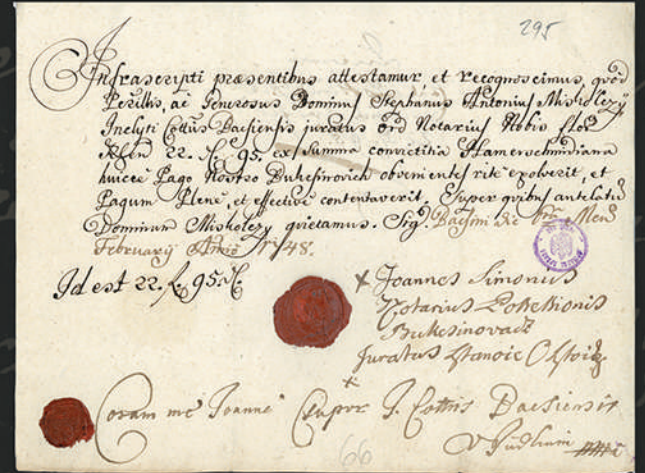 295
Infrascripti præsentibus attestamur, et recognoscimus, quod
Perillis, ac Generosus Dominus Stephanus Antonius Miskolczÿ
Inclyti Cottûs Bacsiensis juratus ord Notarius Nobis flor
Rhen 22. X 95. ex Summa convictitia Hamerschmidiana
huicce Pago Nostro Bukesinovich obvenientes rite exolverit, et
Pagum Plene, et effective contentaverit. Super quibus antelatū
Dominum Miskolczy quietamus. Sig. Bacsini die Men
Februarij Anno 48.
Id est 22. f. 95 X.
Joannes Simonus
Notarius Possessionis
Bukesinovacz
Juratus Stanoie
Coram me Joanne J. Cottus Bacsiensis
Judlium
66